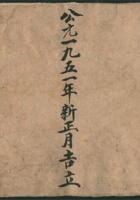 公元一九五一年新正月吉立